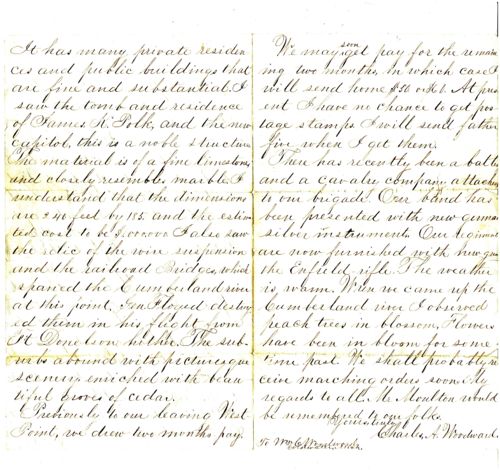 It has many private residen
ces and public buildings that
are fine and substantial. I
saw the tomb and residence
of James K. Polk, and the new
capitol, this is a noble structure
The material is of a fine limestone,
and closely resembles marble. I
understand that the dimensions
are 240 feed by 135, and the estim
ated cost to be $,000000 I also saw
the relic of the wire suspension
and the railroad Bridges, which
spanned the Cumberland river
at this point. Gen Floyed destroy
ed them in his flight from
Ft Donelson hither. The sub
urbs abound with picturesque
scenery enriched with beau
tiful groves of cedar.
Previously to our leaving West
Point, we drew two months pay.
We may soon get pay for the remain
ing two months, in which case I
will send home $50 or
At pres
ent I have no chance to get pos
tage stamps I will send father
five when I get them.
There has recently been a batt
and a cavalry company attached
to our brigade. Our band has
been presented with new german
silver instruments. Our regiment
are now furnished with new guns
the Enfield rifle. The weather
is warm. When we came up the
Cumberland river I observed
peach trees in blossom. Flowers
have been in bloom for some-
time past. We shall probably re
ceive marching orders soon. My
regards to all. Mr Moulton would
be remembered to our folks.
Yours truly
Charles A. Woodward.
To Wm